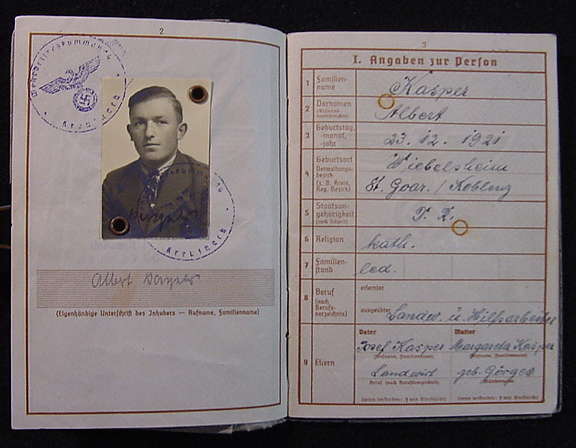 2
Kreuznach
Albert Kasper
(Eigenhändige Unterschrift des Inhabers — Rufname, Familienname)
3
I. Angaben zur Person
1 Familien-
name
Kasper
2 Vornamen
Albert
3 Geburtstag,
-monat,
-jahr
23. 12. 1921
4 Geburtsort
Verwaltungs-
bezirk
(z. B. Kreis,
Reg.-Bezirk)
Wiebelsheim
St. Goar. / Koblenz
5 Staatsan-
gehörigkeit
D. R.
6 Religion
kath.
7 Familien-
stand
led.
8 Beruf
(nach
Berufs-
verzeichnis)
erlernter
ausgeübter
Landw. u. Hilfsarbeiter
9 Eltern
Vater
Josef Kasper
Landwirt
Mutter
Margareta Kasper
geb. Görges